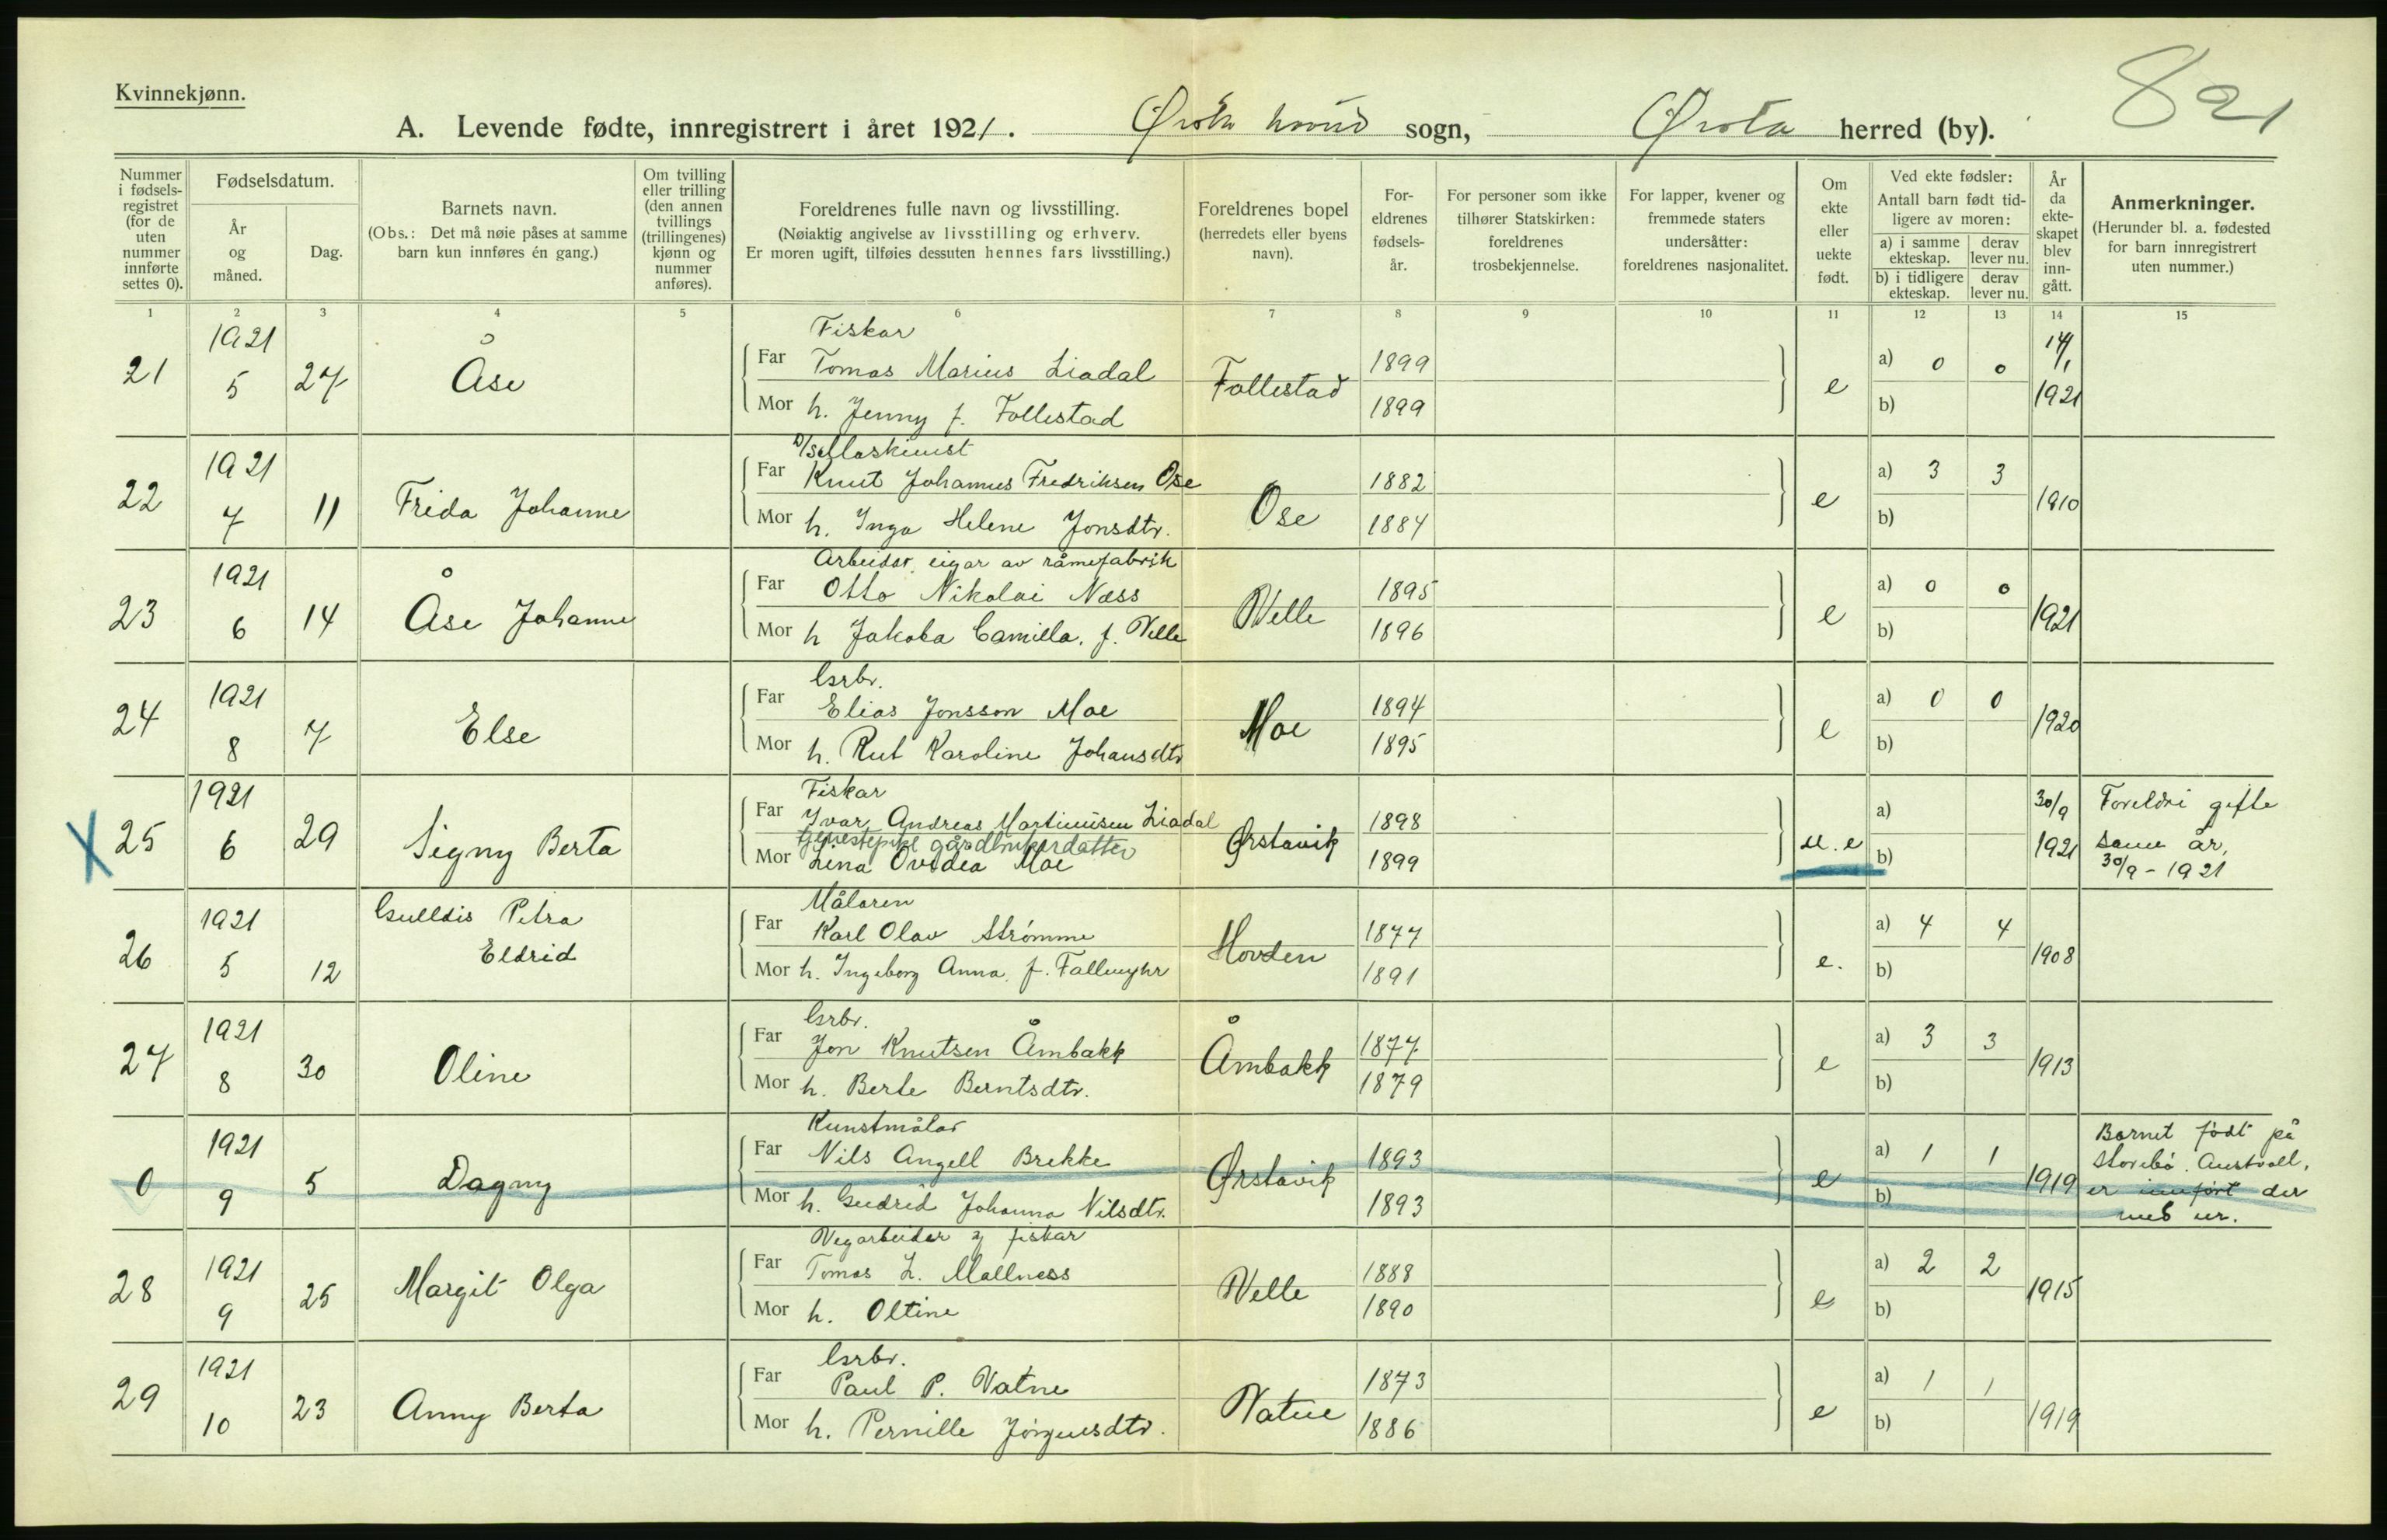 Kvinnekjønn.
821
A. Levende fødte, innregistrert i året 1921. Ørsta sogn, Ørsta herred (by).
Nummer i fødselsregistret (for de uten nummer innførte settes 0).
Fødselsdatum.
År og måned.
Dag.
Barnets navn.
(Obs.: Det må nøie påses at samme barn kun innføres én gang.)
Om tvilling eller trilling (den annen tvillings (trillingenes) kjønn og nummer anføres).
Foreldrenes fulle navn og livsstilling.
(Nøiaktig angivelse av livsstilling og erhverv.
Er moren ugift, tilføies dessuten hennes fars livsstilling.)
Foreldrenes bopel (herredets eller byens navn).
Foreldrenes fødselsår.
For personer som ikke tilhører Statskirken: foreldrenes trosbekjennelse.
For lapper, kvener og fremmede staters undersåtter: foreldrenes nasjonalitet.
Om ekte eller uekte født.
Ved ekte fødsler:
Antall barn født tidligere av moren:
a) i samme ekteskap. derav lever nu.
b) i tidligere ekteskap. derav lever nu.
År da ekteskapet blev inngått.
Anmerkninger.
(Herunder bl. a. fødested for barn innregistrert uten nummer.)
1 2 3 4 5 6 7 8 9 10 11 12 13 14 15
Fiskar
21 1921 5 27 Åse Far Tomas Marius Liadal Follestad 1899 e a) 0 0 14/1 1921
Mor h. Jenny f. Follestad 1899 b)
D/s Maskinist
22 1921 7 11 Frida Johanne Far Knut Johannes Fredriksen Ose Ose 1882 e a) 3 3 1910
Mor h. Inga Helene Jonsdtr. 1884 b)
Arbeidar, eigar av råmefabrik
23 1921 6 14 Åse Johanne Far Otto Nikolai Næss Velle 1895 e a) 0 0 1921
Mor h Jakoba Camilla, f. Velle 1896 b)
Gsrbr.
24 1921 8 7 Else Far Elias Jonsson Moe Moe 1894 e a) 0 0 1920
Mor h. Rut Karoline Johansdtr 1895 b)
Fiskar
X 25 1921 6 29 Signy Berta Far Ivar Andreas Martinusen Liadal Ørstavik 1898 u. e a) 30/9 1921 Foreldri gifte same år, 30/9 - 1921
tjenestepike gårdbrukerdatter
Mor Lina Ovidea Moe 1899 b)
Målaren
26 1921 5 12 Gulldis Petra Eldrid Far Karl Olav Strømme Hovden 1877 e. a) 4 4 1908
Mor h. Ingeborg Anna, f. Fallmyhr 1891 b)
Gsrbr.
27 1921 8 30 Oline Far Jon Knutsen Åmbakk Åmbakk 1877 e a) 3 3 1913
Mor h. Berte Berntsdtr. 1879 b)
Kunstmålar
0 1921 9 5 Dagny Far Nils Angell Brekke Ørstavik 1893 e a) 1 1 1919 Barnet født på Storebø. Austvoll, er innført der med nr.
Mor h. Gudrid Johanna Nilsdtr. 1893 b)
Vegarbeider og fiskar
28 1921 9 25 Margit Olga Far Tomas L. Mallness Velle 1888 e a) 2 2 1915
Mor h. Oltine 1890 b)
Gsrbr.
29 1921 10 23 Anny Berta Far Paul P. Vatne Vatne 1873 e a) 1 1 1919
Mor h. Pernille Jørgensdtr. 1886 b)